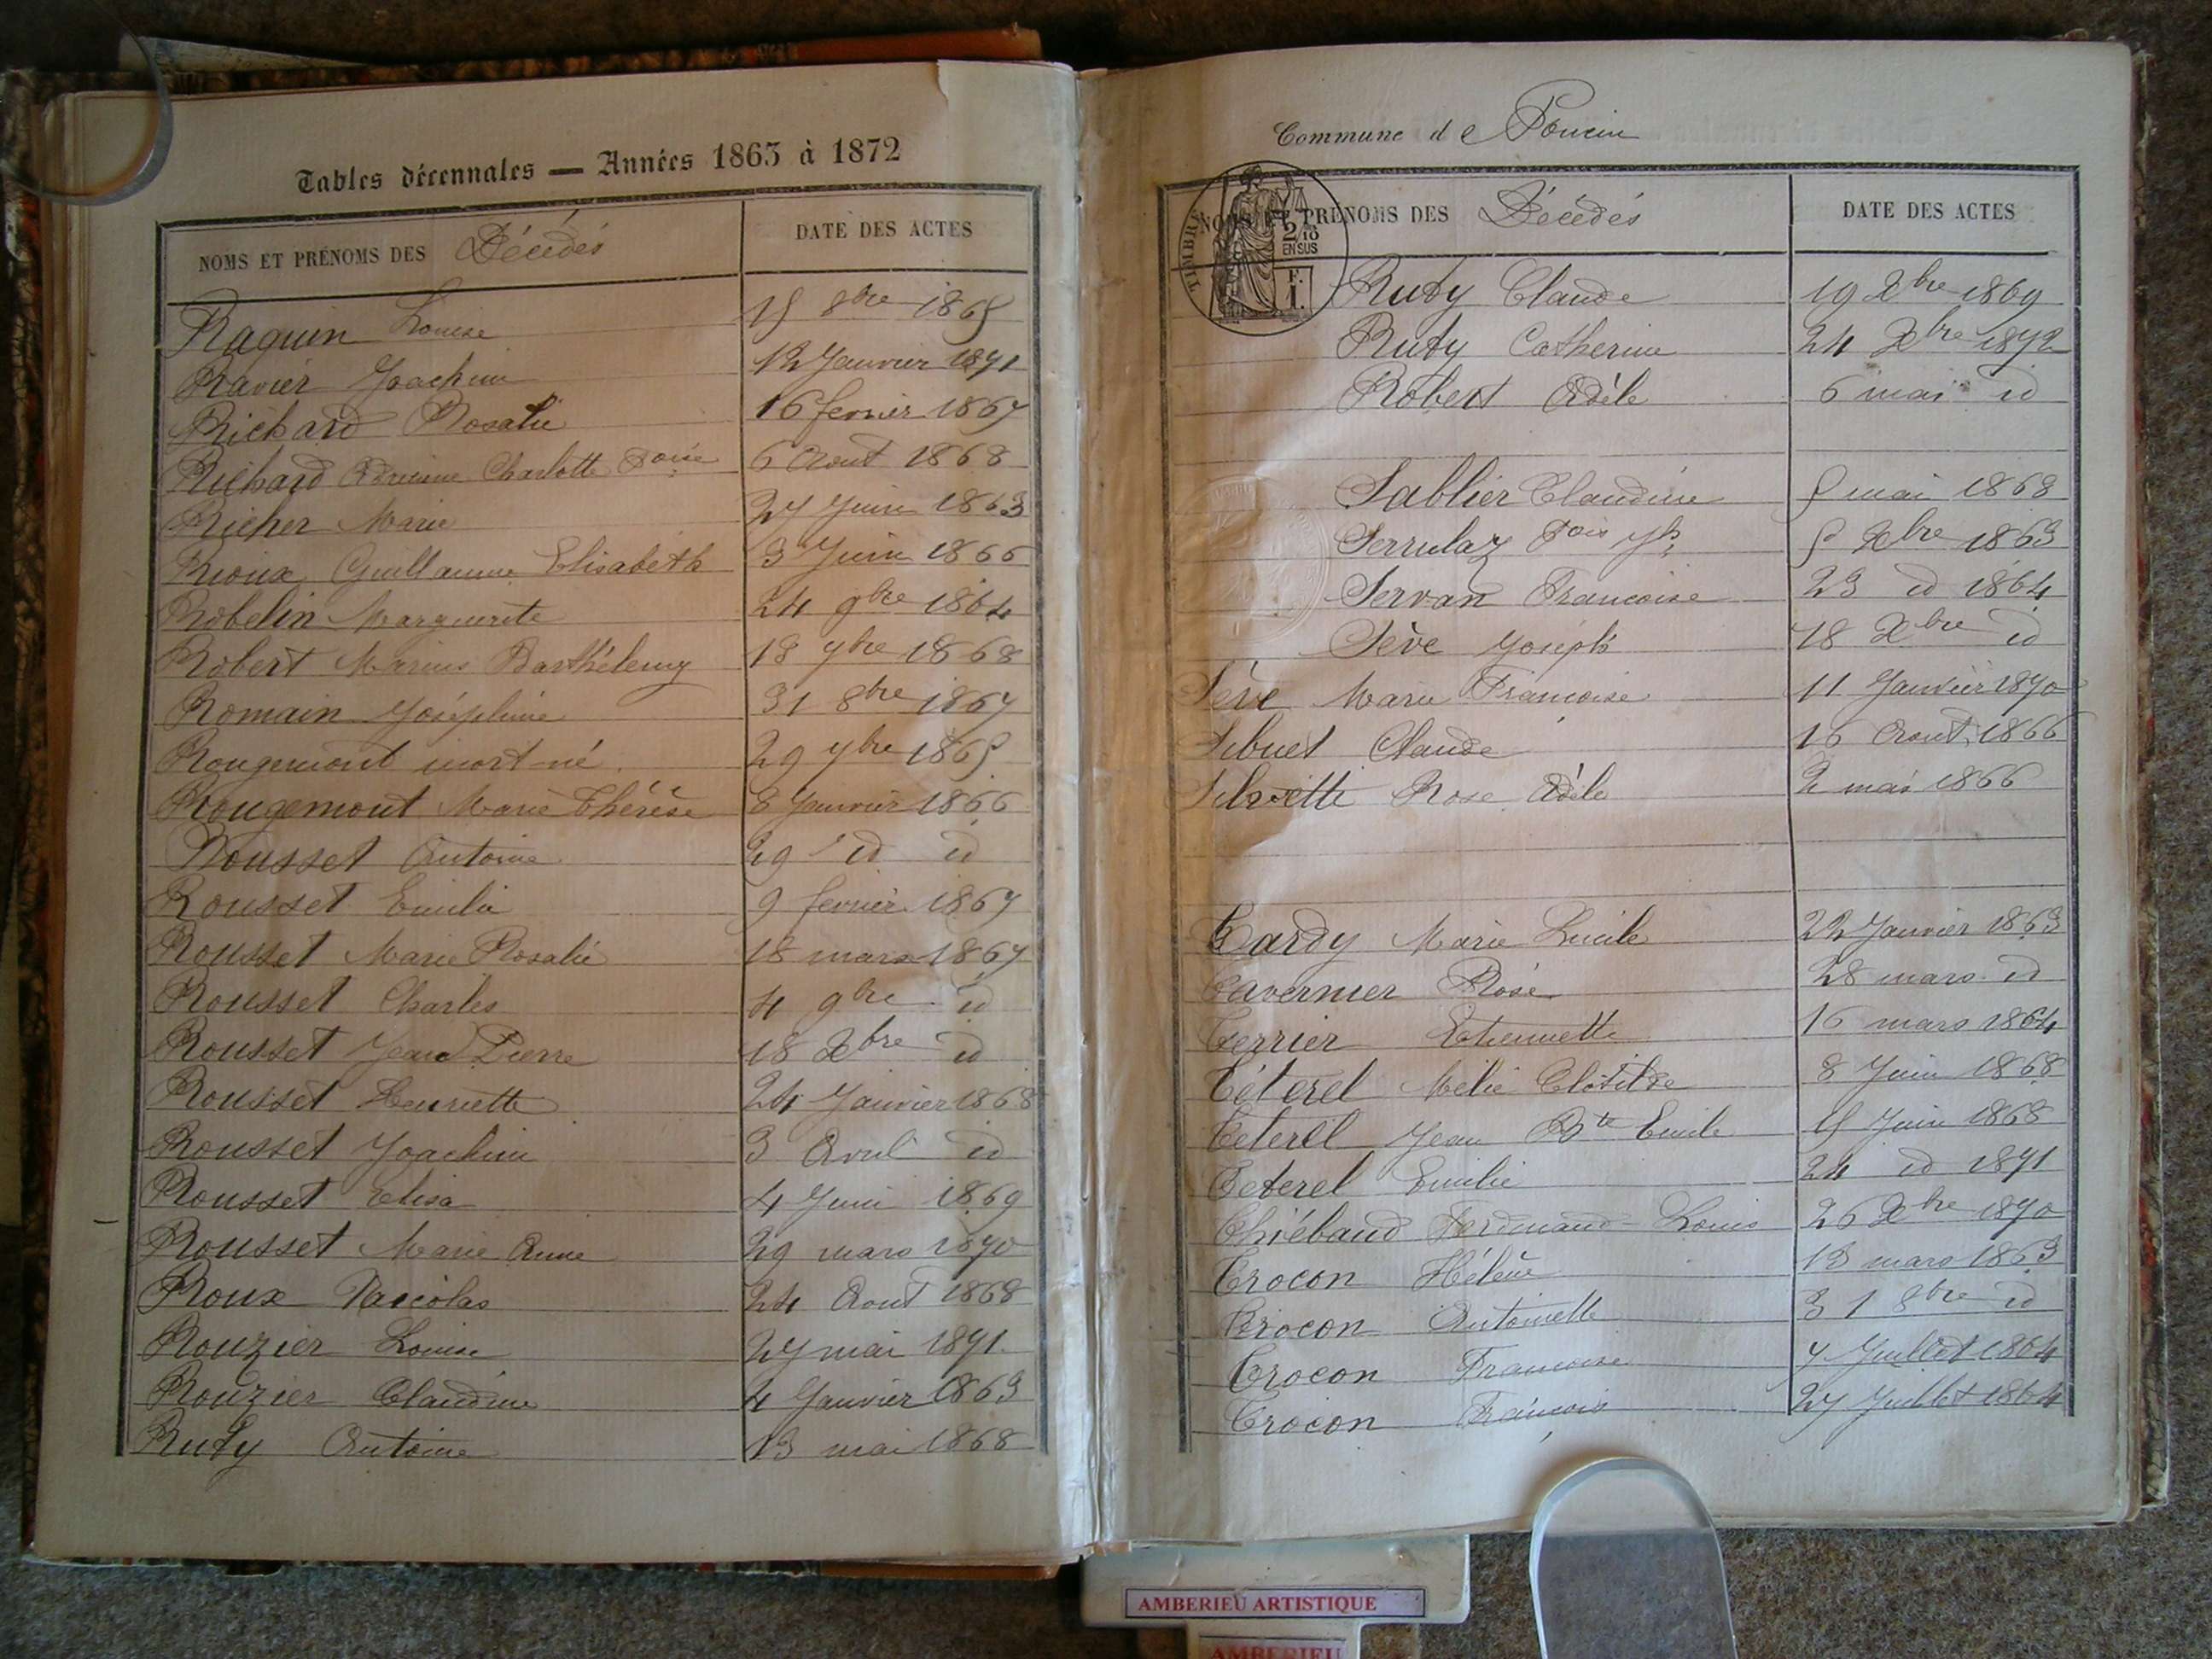 Tables décennales — Années 1863 à 1872
NOMS ET PRÉNOMS DES Décédés DATE DES ACTES
Raquin Louise 15 8bre 1865
Ravier Joachim 12 Janvier 1871
Richard Rosalie 16 fevrier 1867
Richard Charlotte 6 Aout 1868
Richer Marie 27 Juin 1863
Rioux Guillaume Elisabeth 3 Juin 1866
Robelin Marguerite 24 9bre 1864
Robert Marius Barthélemy 18 7bre 1868
Romain Joséphine 31 8bre 1867
Rougemont mort-né 29 7bre 1865
Rougemont Marie Thérèse 8 Janvier 1866
Rousset Antoine 29 id id
Rousset Emilie 9 fevrier 1867
Rousset Marie Rosalie 18 mars 1867
Rousset Charles 4 9bre id
Rousset Jean Pierre 18 Xbre id
Rousset Henriette 24 Janvier 1868
Rousset Joachim 3 Avril id
Rousset Elisa 4 Juin 1869
Rousset Marie Anne 29 mars 1870
Roux 24 Aout 1868
Rouzier Louise 27 mai 1871
Rouzier Claudine 4 Janvier 1863
Ruty Antoine 13 mai 1868
Commune de Poncin
TIMBRE
2/10
EN SUS
F.
1.
NOMS ET PRÉNOMS DES Décédés DATE DES ACTES
Ruty Claude 19 Xbre 1869
Ruty Catherine 24 Xbre 1872
Robert Adèle 6 mai id
Sablier Claudine 5 mai 1868
Serrulaz fois jh 5 Xbre 1863
Servan Francoise 23 id 1864
Sève Joseph 18 Xbre id
Sève Marie Francoise 11 Janvier 1870
Sibuet Claude 16 Aout 1866
Silvette Rose Adèle 2 mai 1866
Tardy Marie Lucile 22 Janvier 1863
Tavernier Rose 28 mars id
Terrier Etiennette 16 mars 1864
Téterel Mélie Clotilde 8 Juin 1868
Téterel Jean Bte Emile 15 Juin 1868
Teterel Emilie 24 id 1871
Thiébaud Ferdinand-Louis 26 Xbre 1870
Trocon Hélène 13 mars 1863
Trocon Antoinette 31 8bre id
Trocon Francoise 7 Juillet 1864
Trocon Francois 27 Juillet 1864
AMBERIEU ARTISTIQUE
AMBERIEU